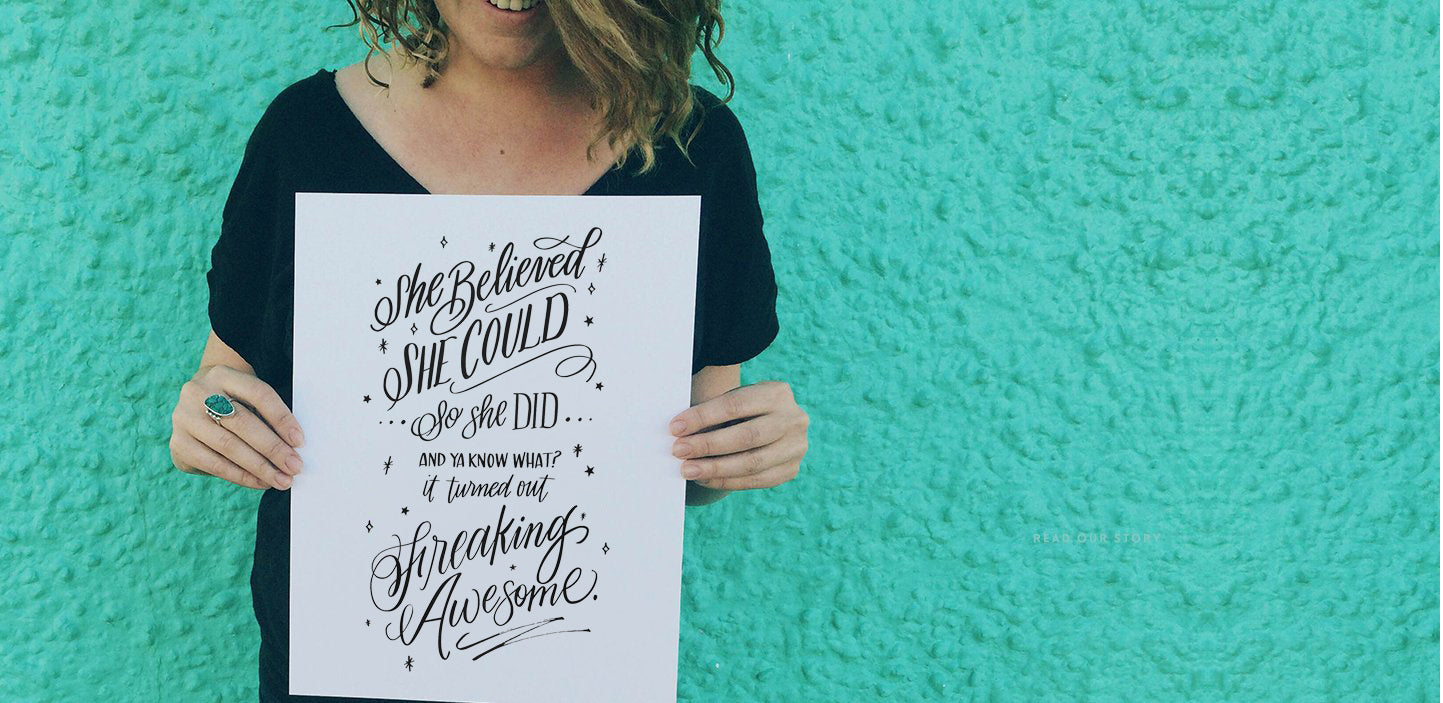 She Believed
SHE COULD
...So she DID...
AND YA KNOW WHAT?
it turned out
Freaking
Awesome.
READ OUR STORY